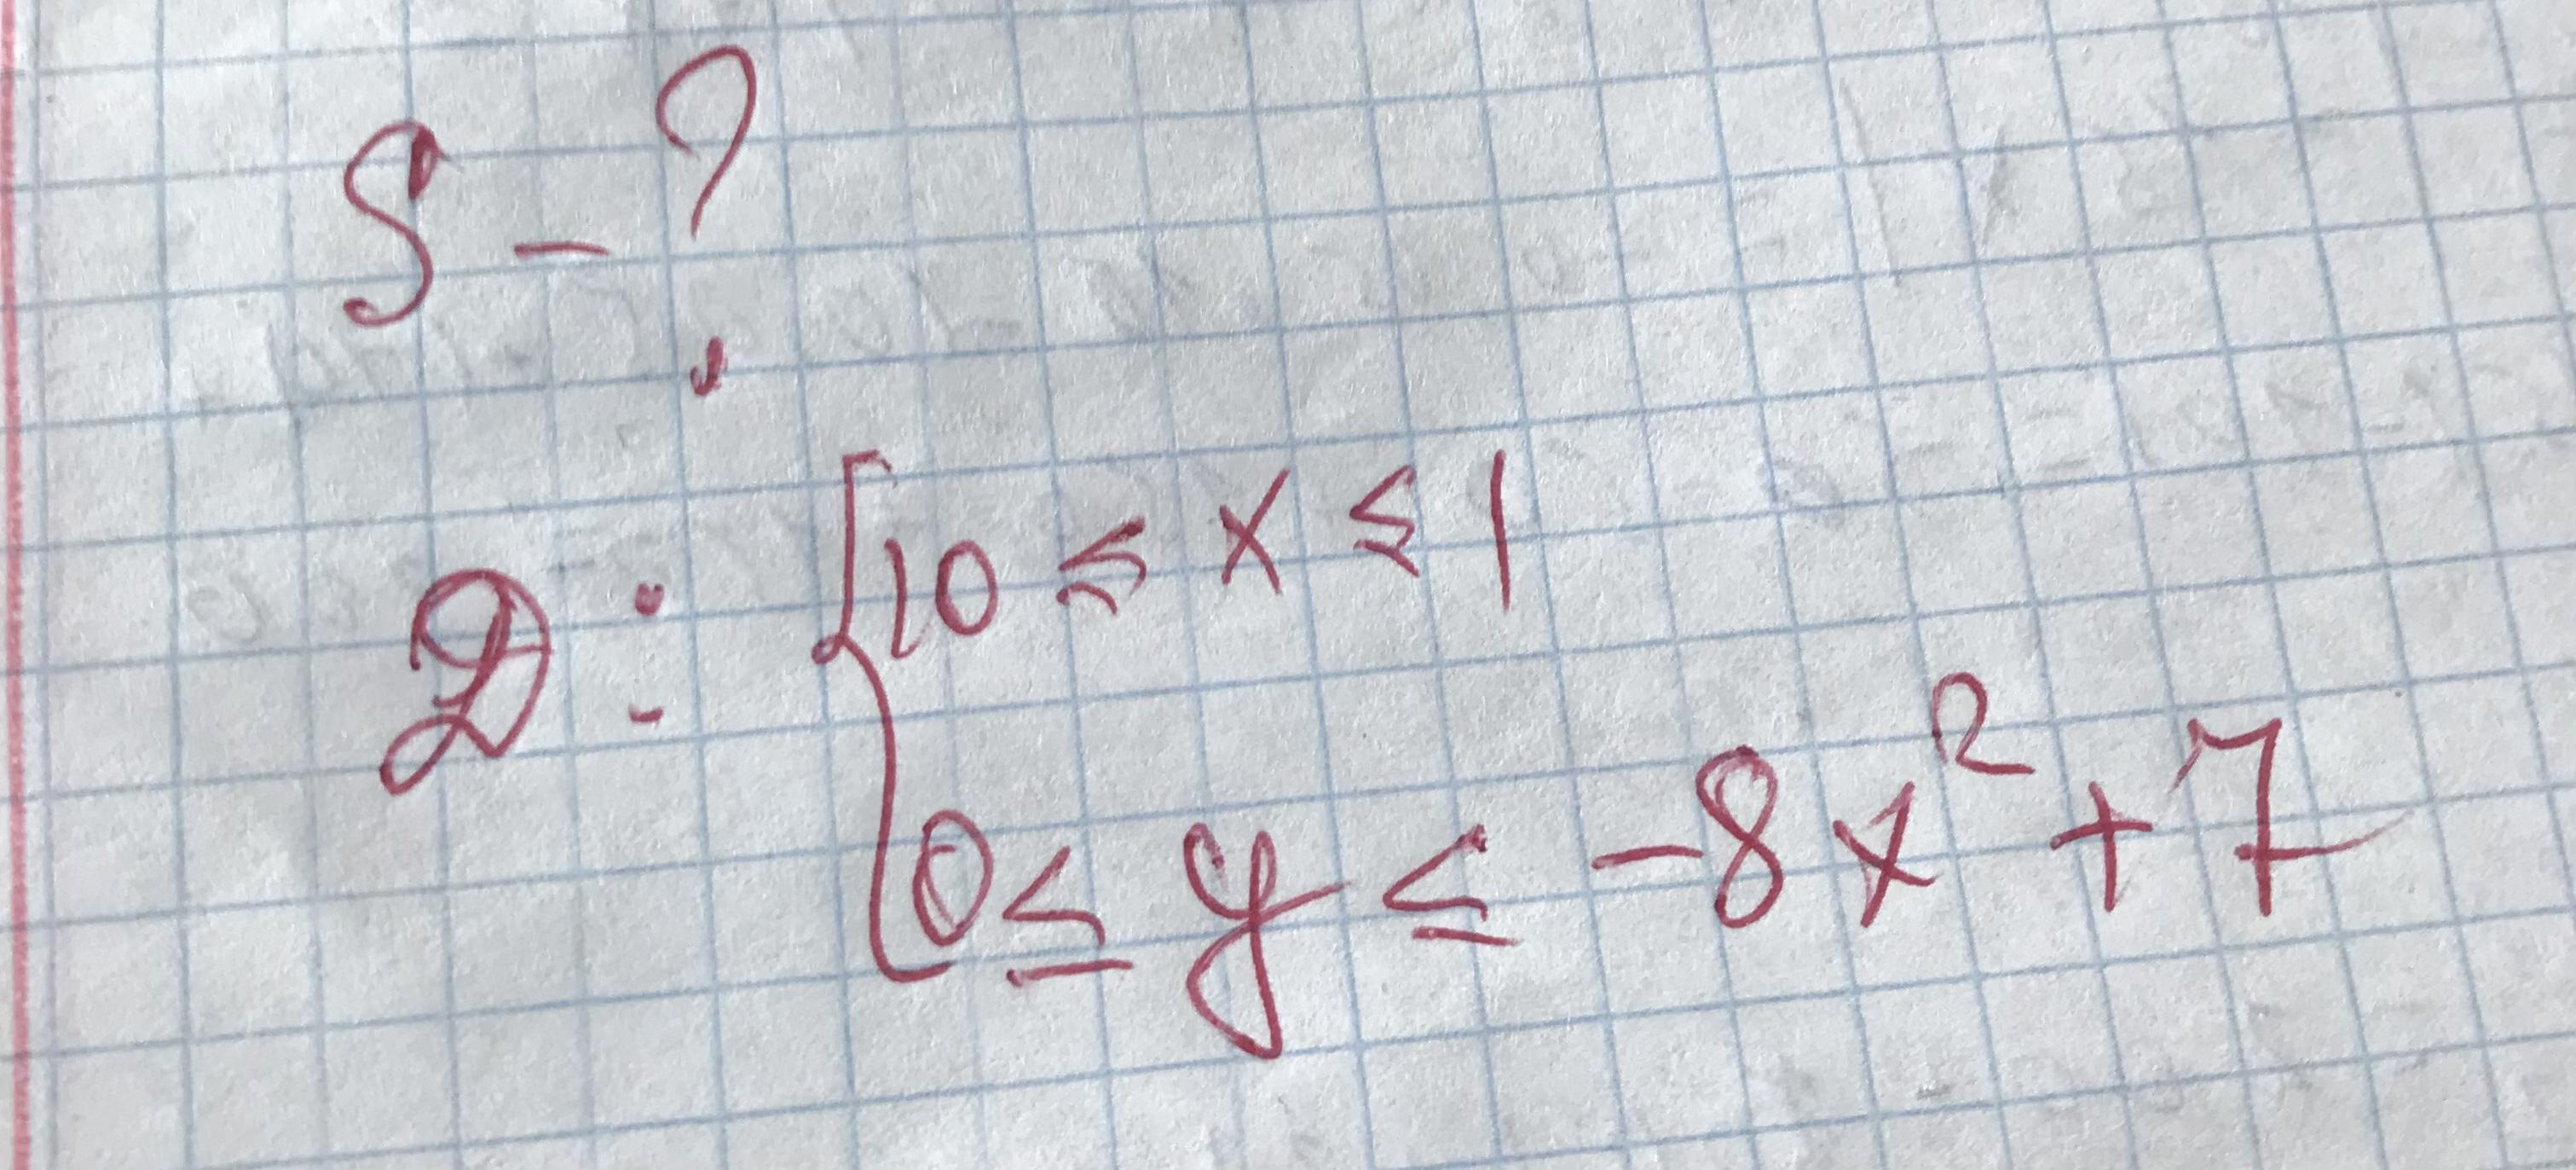 S - ?
D : { 10 ≤ x ≤ 1
0 ≤ y ≤ -8x² + 7